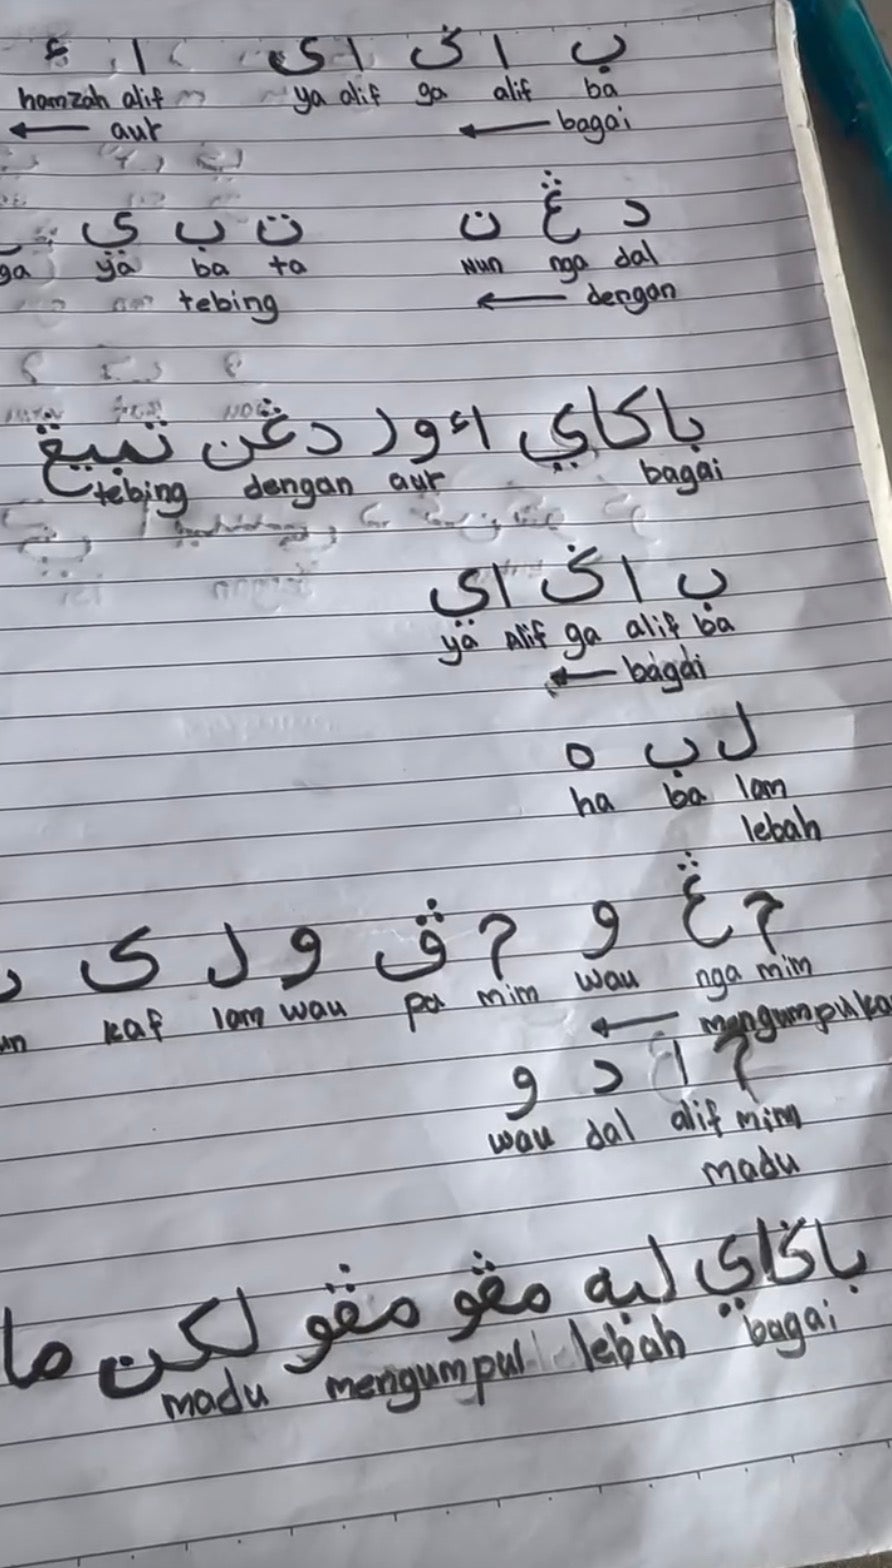 ب ا ݢ ا ی ا ء
ba alif ga alif ya alif hamzah
bagai aur
د ڠ ن ت ب ي
dal nga nun ta ba ya ga
dengan tebing
باکاي اءور دڠن تبيڠ
bagai aur dengan tebing
ب ا ݢ ا ي
ba alif ga alif ya
bagai
ل ب ه
lam ba ha
lebah
م ڠ و م ڤ و ل ک
mim nga wau mim pa wau lam kaf
م ا د و
mim alif dal wau
madu
باݢاي لبه مڠو مڤو لکن ما
bagai lebah mengumpul madu